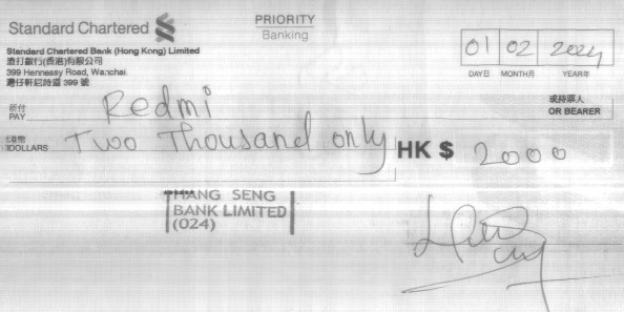 Standard Chartered
PRIORITY
Banking
Standard Chartered Bank (Hong Kong) Limited
渣打銀行(香港)有限公司
399 Hennessy Road, Wanchai.
灣仔軒尼詩道 399 號
01 02 2024
DAY日 MONTH月 YEAR年
祈付
PAY
Redmi
或持票人
OR BEARER
DOLLARS
Two Thousand only
HK $ 2000
HANG SENG
BANK LIMITED
(024)